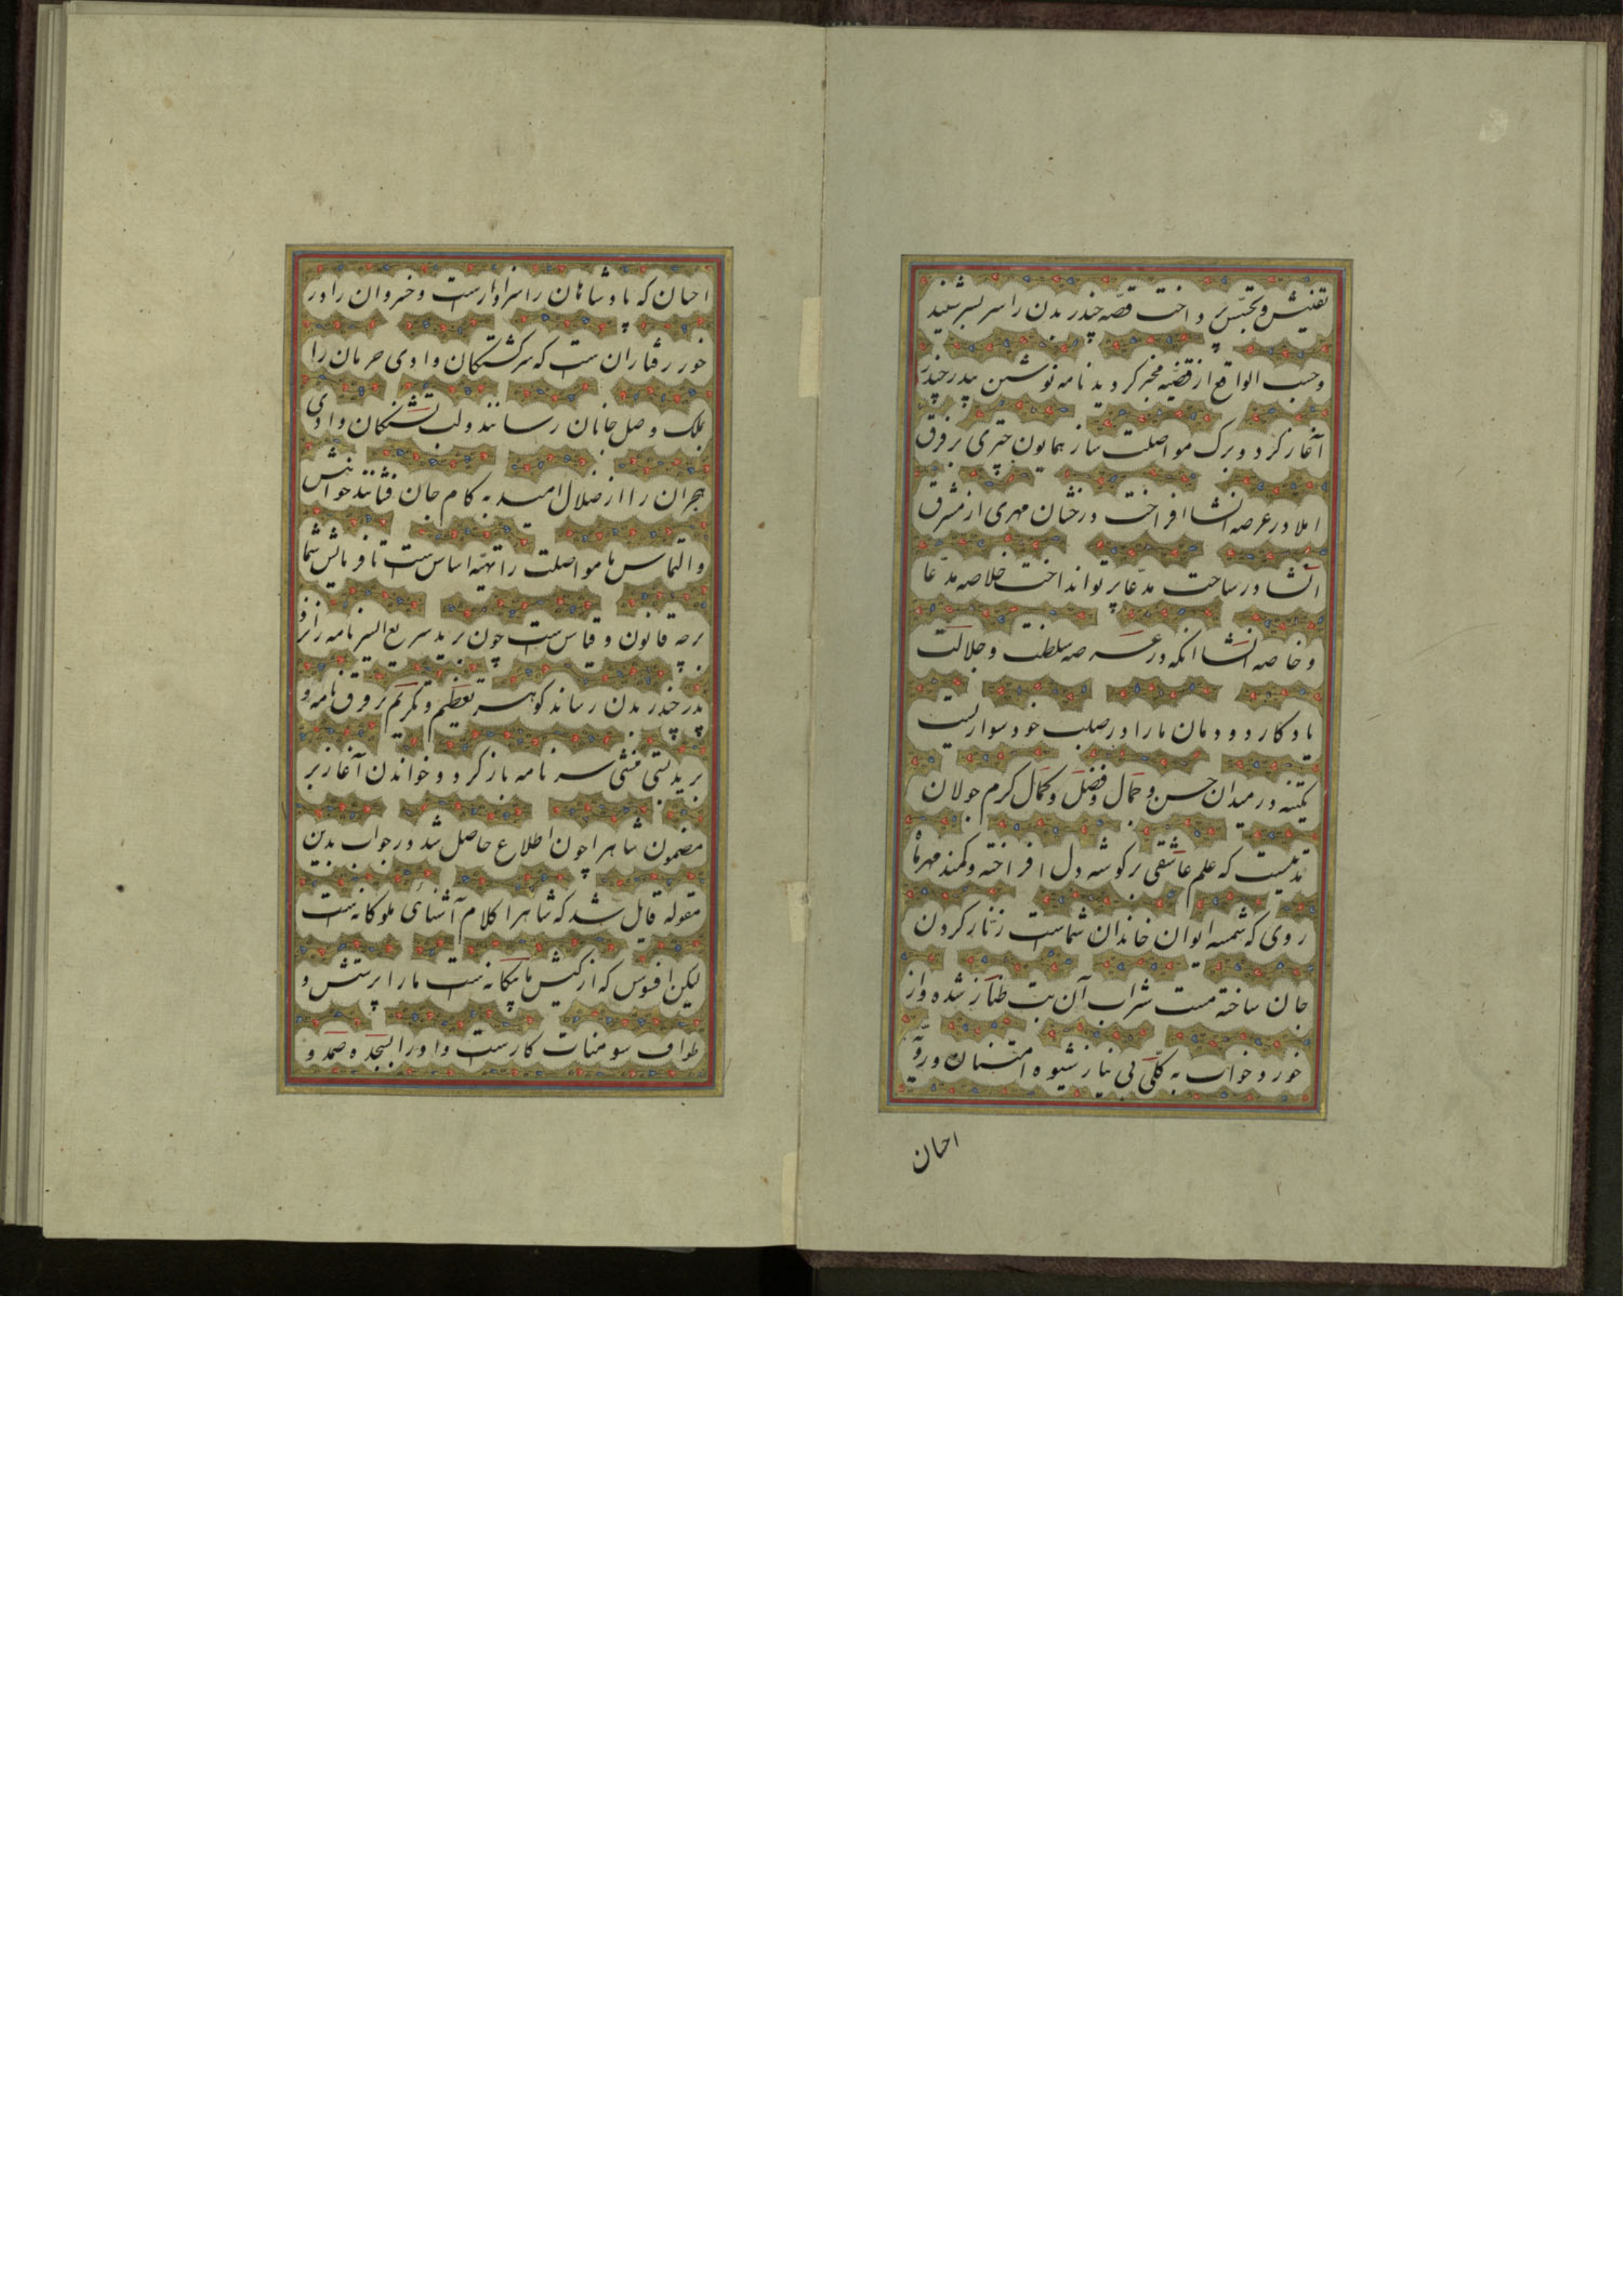 تفتیش و تجسّس پرداخت قصّه چندر بدن را سر بسر شنید
و حسب الواقع از قضیّه مخبر کردید نامه نوشتن بپدر چندر
آغاز کرد و برک مواصلت ساز همایون چتری بر فرق
املا در عرصه انشا افراخت درخشان مهری از مشرق
انشا در ساحت مدّعا پرتو انداخت خلاصه مدّعا
و خاصه انشا انکه در عرصه سلطنت و جلالت
یادکار دودمان ما را در صلب خود سواریست
یکتنه در میدان حسن و جمال و فضل و کمال کرم جولان
مدتیست که علم عاشقی بر کوشه دل افراخته و کمند مهر ماه
روی که شمسه ایوان خاندان شماست زنّار کردن
جان ساخته مست شراب آن بت طنّاز شده و از
خور و خواب به کلّی بی نیاز شیوه امتنان و رویّه
احسان
احسان که پادشاهان را سزاوارست و خسروان را در
خور رفتار آن ست که سرکشتکان وادی حرمان را
بملک وصل جانان رسانند و لب تشنکان وادی
هجران را از ضلال امید به کام جان فشانند خواهش
و التماس ما مواصلت را تهیّه اساس ست تا فرمایش شما
بر چه قانون و قیاس ست چون برید سریع السیر نامه را نزد
پدر چندر بدن رساند کوهر تعظیم و تکریم بر فرق نامه و
برید منشی سر نامه باز کرد و خواندن آغاز بر
مضمون شاه را چون اطلاع حاصل شد در جواب بدین
مقوله قایل شد که شاه را کلام آشنائی ملوکانه ست
لیکن افسوس که از کیش ما بیکانه ست ما را پرستش و
طواف سومنات کارست و او را بسجده صمد و